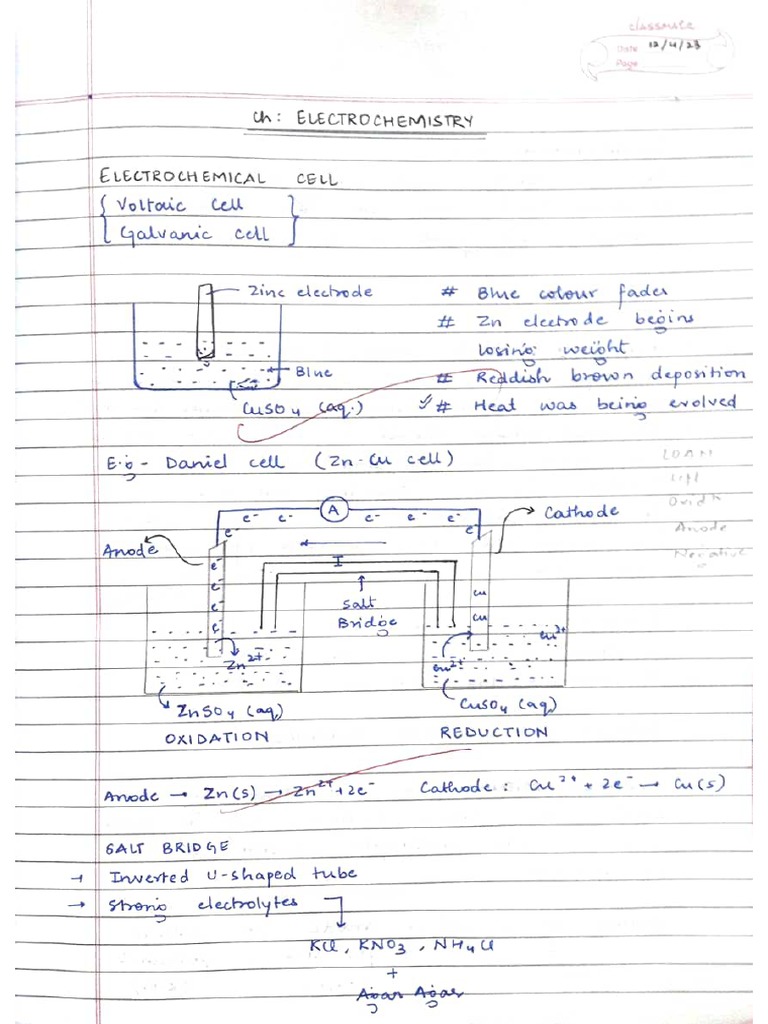 classmate
Date 12/4/23
Page
Ch: ELECTROCHEMISTRY
ELECTROCHEMICAL CELL
{ Voltaic cell }
{ Galvanic cell }
Zinc electrode
Blue
CuSO4 (aq.)
# Blue colour fades
# Zn electrode begins
losing weight
# Reddish brown deposition
✓# Heat was being evolved
E.g - Daniel cell (Zn-Cu cell)
LOAN
Oxidn
Anode
Negative
e- e- A e- e- e-
e- e-
Anode
Cathode
I
e-
e-
e-
e-
Salt
Bridge
Cu
Cu
Zn2+
Cu2+
Cu2+
ZnSO4 (aq)
CuSO4 (aq)
OXIDATION
REDUCTION
Anode → Zn(s) → Zn2+ + 2e-
Cathode : Cu2+ + 2e- → Cu(s)
SALT BRIDGE
→ Inverted U-shaped tube
→ Strong electrolytes
KCl, KNO3, NH4Cl
+
Agar Agar